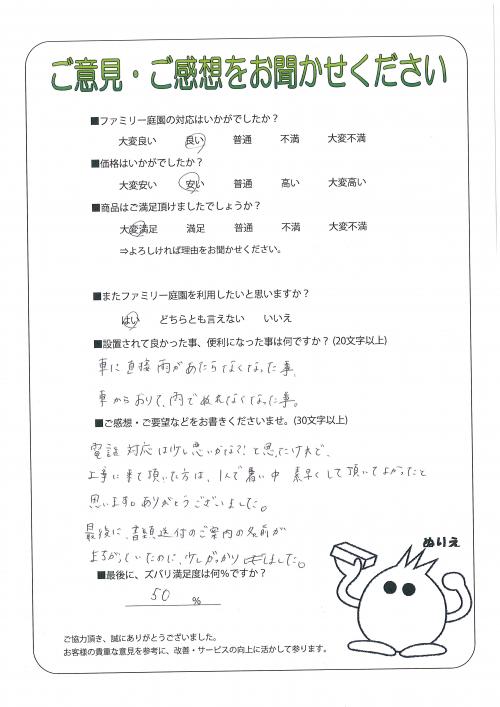 ご意見・ご感想をお聞かせください
■ファミリー庭園の対応はいかがでしたか？
大変良い 良い 普通 不満 大変不満
■価格はいかがでしたか？
大変安い 安い 普通 高い 大変高い
■商品はご満足頂けましたでしょうか？
大変満足 満足 普通 不満 大変不満
⇒よろしければ理由をお聞かせください。
■またファミリー庭園を利用したいと思いますか？
はい どちらとも言えない いいえ
■設置されて良かった事、便利になった事は何ですか？ (20文字以上)
車に直接雨があたらなくなった事。
車からおりて、雨でぬれなくなった事。
■ご感想・ご要望などをお書きくださいませ。(30文字以上)
電話対応は少し悪いかな?!と思ったけれど、
工事に来て頂いた方は、1人で暑い中 素早くして頂いてよかったと
思います。ありがとうございました。
最後に、書類送付のご案内の名前が
まちがっていたのに、少しがっかりしました。
ぬりえ
■最後に、ズバリ満足度は何％ですか？
50 ％
ご協力頂き、誠にありがとうございました。
お客様の貴重な意見を参考に、改善・サービスの向上に活かして参ります。